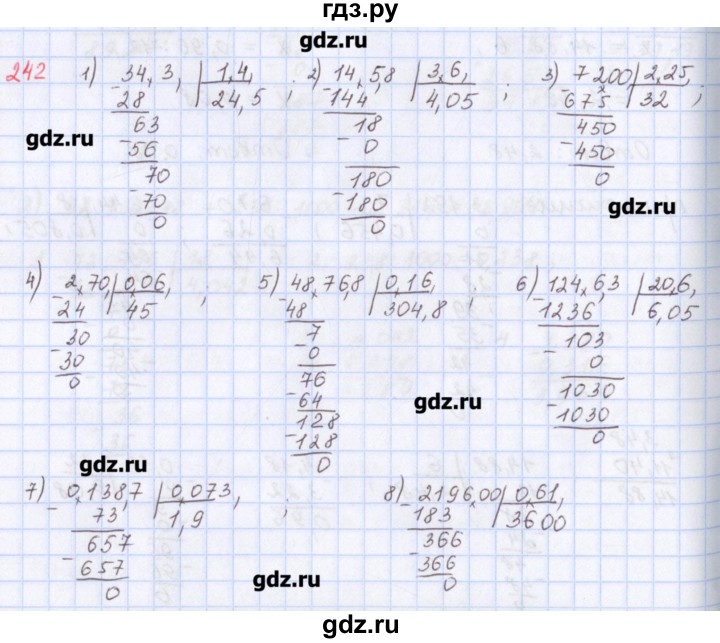 гдз.ру
gdz.ru
242 1) 34,3, | 1,4, ; 2) 14,5,8 | 3,6, ; 3) 7200, | 2,25, ;
28 24,5 144 4,05 675 32
63 18 450
gdz.ru
56 0 450
70 180 0
70 180
0 0
gdz.ru
4) 2,70, | 0,06, ; 5) 48,76,8 | 0,16, ; 6) 124,6,3 | 20,6,
24 45 48 304,8 1236 6,05
30 7 103
30 0 0
0 76 1030
64 1030
gdz.ru
128 0
128
0
gdz.ru
7) 0,138,7 | 0,073, ; 8) 2196,00, | 0,61,
73 1,9 183 3600
657 366
657 366
0 0
gdz.ru
gdz.ru